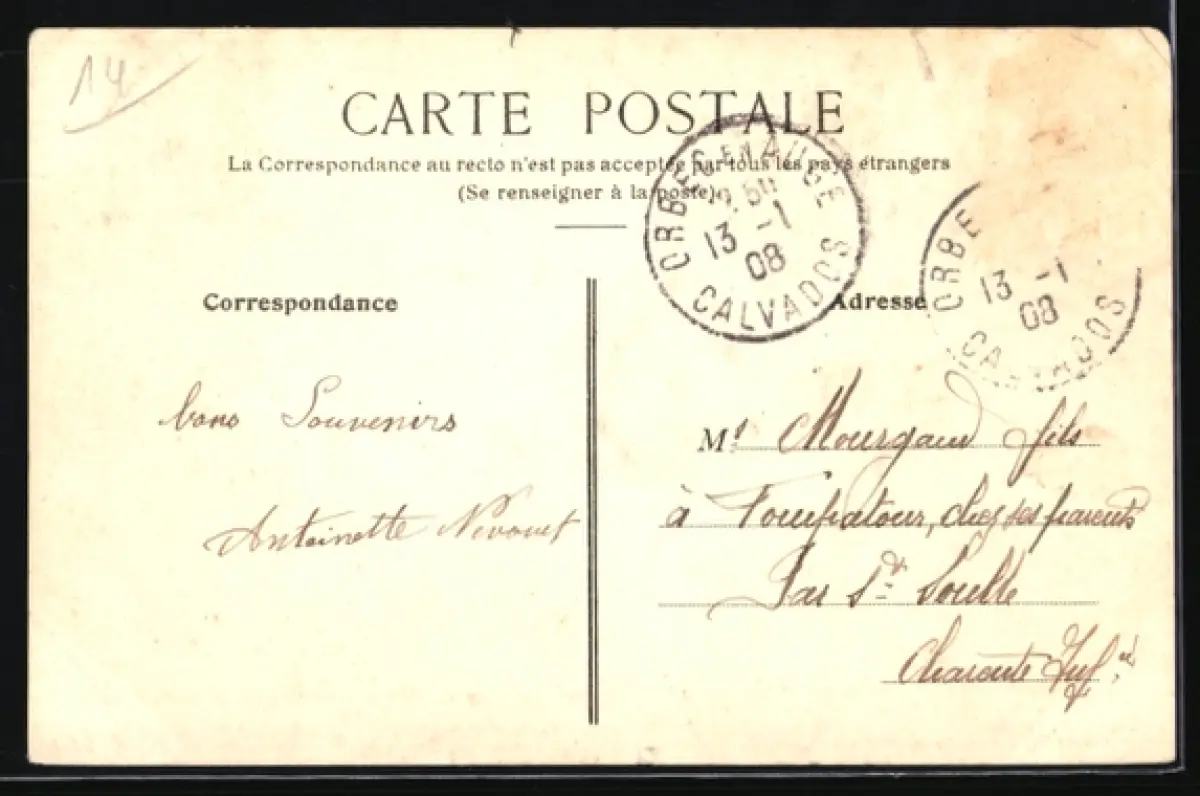 14
CARTE POSTALE
La Correspondance au recto n'est pas acceptée par tous les pays étrangers
(Se renseigner à la poste).
ORBEC EN AUGE
13 -1
08
CALVADOS
ORBE
13 -1
08
CALVADOS
Correspondance
Adresse
bons Souvenirs
Antoinette
Mr Mourgaud fils
à Fompatour, chez ses parents
Par St Soulle
Charente Infre